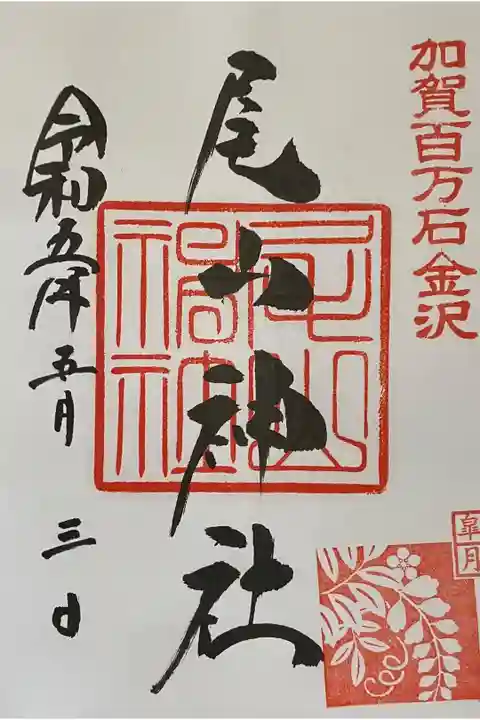 加賀百万石金沢
尾山神社
令和五年五月三日
皐月